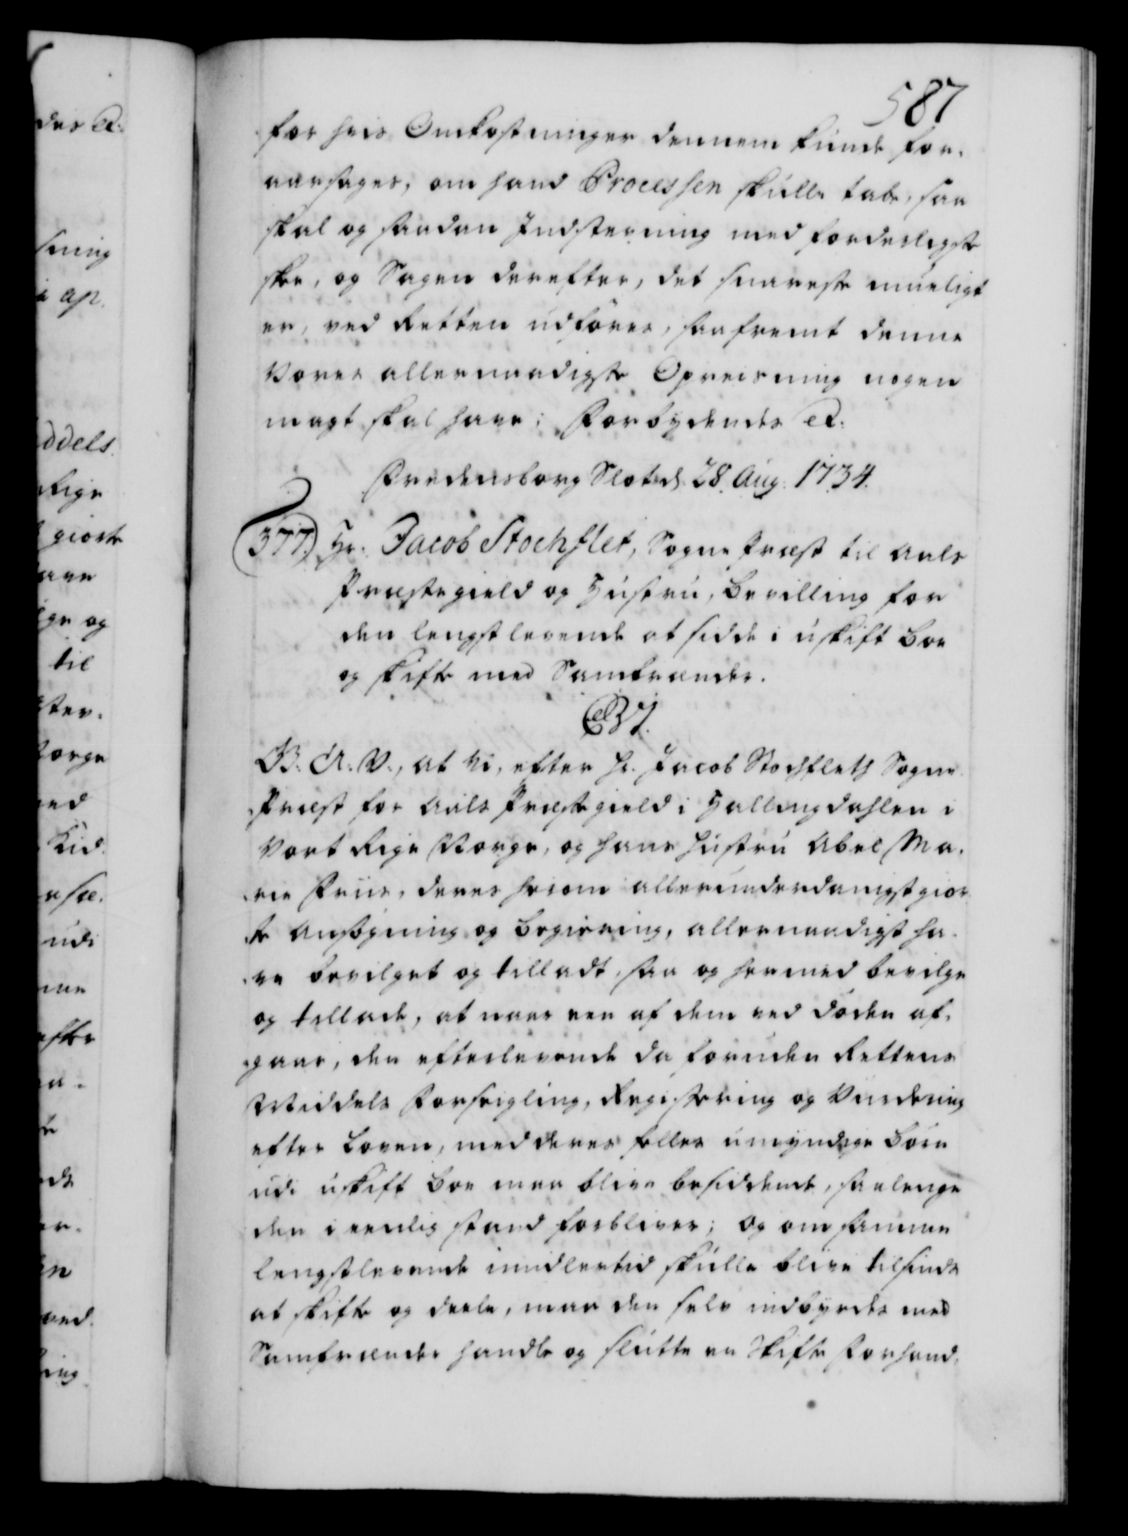 587
for hvis Omkostninger dennem kunde for-
aarsages, om hand Processen skulle tabe, saa
skal og saadan Indstevning med forderligste
skee, og Sagen derefter, det snareste mueligt
er, ved Retten udføres, saafremt denne
Vores allernaadigste Opreisning nogen
magt skal have; Forbydendes etc.
Fredensborg Slot d. 28. Aug. 1734.
377.) Hr. Jacob Stochflet, Sogne Præst til Aals
Præstegield og Hustru, Bevilling for
den lengstlevende at sidde i uskift Boe
og skifte med Samfrænder.
C. 6.
G. A. V., at Vi, efter Hr. Jacob Stochfleth Sogne
Præst for Aals Præstegield i Hallingdahlen i
Vort Rige Norge, og hans Hustru Abel Ma-
rie Friis, deres herom allerunderdanigst gior-
te Ansøgning og Begiering, allernaadigst ha-
ve bevilget og tilladt, saa og hermed bevilge
og tillade, at naar een af dem ved døden af-
gaar, den efterlevende da foruden Rettens
Middels Forseigling, Registering og Vurdering
efter Loven, med deres felles umyndige Børn
udi uskift Boe maa blive besiddende, saalenge
den i eenlig stand forbliver; Og om samme
lengstlevende imidlertid skulle blive tilsinds
at skifte og deele, maa den selv indbyrdes med
Samfrænder handle og slutte en Skifte Forhand-